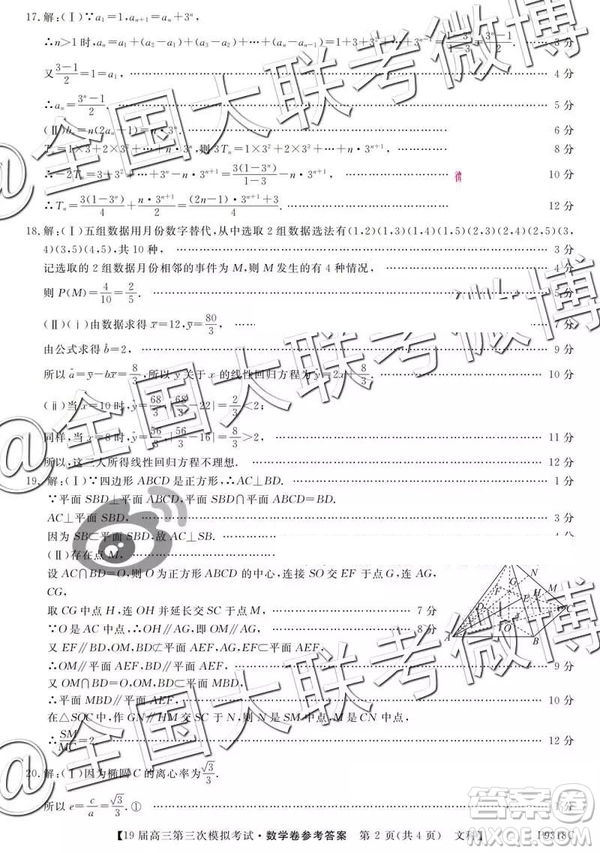 17.解:(Ⅰ)∵a₁=1,aₙ₊₁=aₙ+3ⁿ,
∴n>1时,aₙ=a₁+(a₂-a₁)+(a₃-a₂)+…+(aₙ-aₙ₋₁)=1+3+3²+…+3ⁿ⁻¹= 3分
又(3-1)/2=1=a₁, 4分
∴aₙ=(3ⁿ-1)/2. 5分
(Ⅱ)bₙ=n(2aₙ+1)=n·3ⁿ, 6分
Tₙ=1×3+2×3²+…+n·3ⁿ 7分
∴-2Tₙ=3+3²+…+3ⁿ-n·3ⁿ⁺¹=3(1-3ⁿ)/(1-3)-n·3ⁿ⁺¹ 10分
∴Tₙ=3(1-3ⁿ)/4+n·3ⁿ⁺¹/2=((2n-1)·3ⁿ⁺¹+3)/4. 12分
18.解:(Ⅰ)五组数据用月份数字替代,从中选取2组数据选法有(1,2)(1,3)(1,4)(1,5)(2,3)(2,4)(2,5)(3,
4)(3,5)(4,5),共10种, 3分
记选取的2组数据月份相邻的事件为M,则M发生的有4种情况,
则P(M)=4/10=2/5. 5分
(Ⅱ)(ⅰ)由数据求得x̄=12,ȳ=80/3, 8分
由公式求得b̂=2, 9分
所以â=ȳ-b̂x̄=8/3,所以y关于x的线性回归方程为ŷ=2x+8/3. 10分
(ⅱ)当x=10时,ŷ=68/3,|68/3-22|=2/3<2;
同样,当x=8时,ŷ=56/3,|56/3-16|=8/3>2, 11分
所以,这三人所得线性回归方程不理想. 12分
19.解:(Ⅰ)∵四边形ABCD是正方形,∴AC⊥BD, 1分
∵平面SBD⊥平面ABCD,平面SBD∩平面ABCD=BD,
AC⊥平面SBD 3分
因为SB⊂平面SBD,故AC⊥SB. 5分
(Ⅱ)存在点M,
设AC∩BD=O,则O为正方形ABCD的中心,连接SO交EF于点G,连AG,
CG,
取CG中点H,连OH并延长交SC于点M. 7分
∵O是AC中点,∴OH∥AG,即OM∥AG,
又EF∥BD,OM,BD⊄平面AEF,AG,EF⊂平面AEF,
∴OM∥平面AEF,BD∥平面AEF, 9分
又OM∩BD=O,OM,BD⊂平面MBD,
∴平面MBD∥平面AEF, 10分
在△SOC中,作GN∥HM交SC于N,则N为SM中点,
∴SM/MC=2 12分
20.解:(Ⅰ)因为椭圆C的离心率为√3/3.
所以e=c/a=√3/3.①
【19届高三第三次模拟考试·数学卷参考答案 第2页(共4页) 文科】 19318C
@全国大联考微博
@全国大联考微博